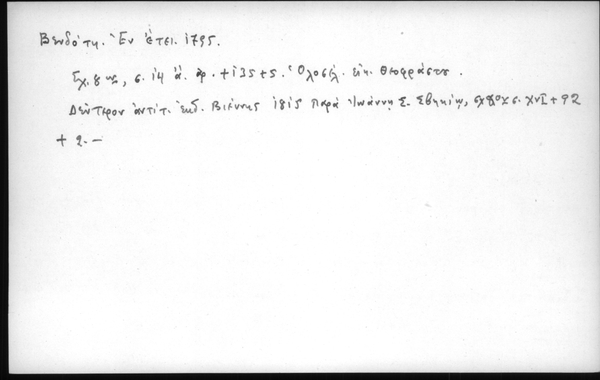 Βενδότη. Ἐν ἔτει 1795.
Σχ. 8ον, σ. 14 ἄ. ἀρ. + 135 + 5. Ὁλοσέλ. εἰκ. Θεοφράστου.
Δεύτερον ἀντίτ. ἐκδ. Βιέννης 1815 παρὰ Ἰωάννῃ Σ. , σχ. 8ον σ. XVI + 92
+ 2. —